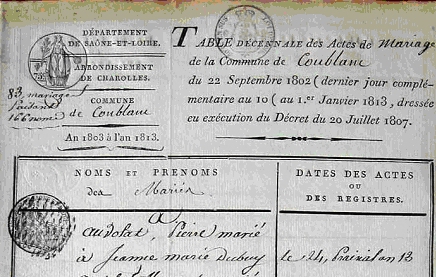 DÉPARTEMENT
DE SAÔNE-ET-LOIRE.
ARRONDISSEMENT
DE CHAROLLES.
83, mariage
166 noms
COMMUNE
de Coublanc
An 1803 à l'an 1813.
TABLE DÉCENNALE des Actes de Mariage
de la Commune de Coublanc
du 22 Septembre 1802 (dernier jour complé-
mentaire au 10 (au 1.er Janvier 1813, dressée
en exécution du Décret du 20 Juillet 1807.
NOMS ET PRÉNOMS
des Mariés
DATES DES ACTES
OU
DES REGISTRES.
A
audolat, Pierre marié
à Jeanne marie
le 24, Prairial an 13